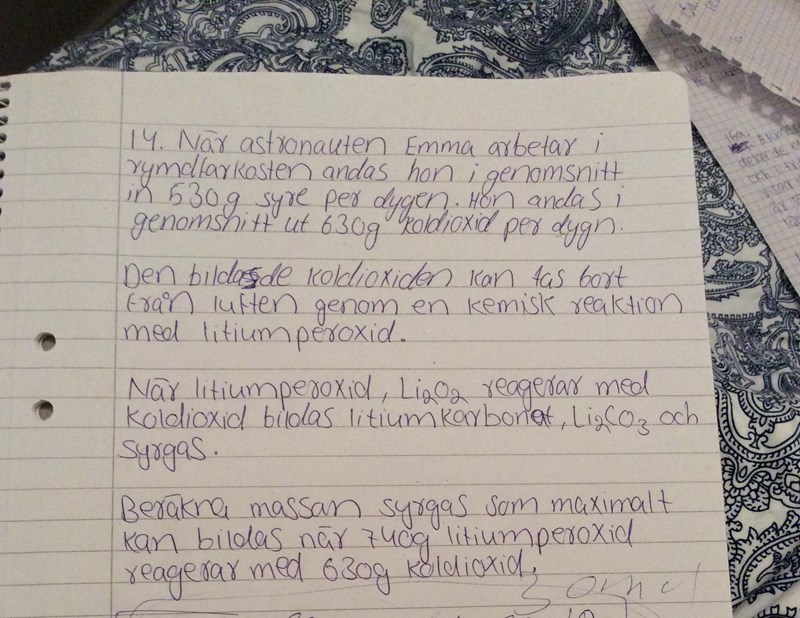 14. När astronauten Emma arbetar i
rymdfarkosten andas hon i genomsnitt
in 530g syre per dygen. Hon andas i
genomsnitt ut 630g koldioxid per dygn.
Den bildade koldioxiden kan tas bort
från luften genom en kemisk reaktion
med litiumperoxid.
När litiumperoxid, Li2O2 reagerar med
koldioxid bildas litiumkarbonat, Li2CO3 och
syrgas.
Beräkna massan syrgas som maximalt
kan bildas när 740g litiumperoxid
reagerar med 630g koldioxid.